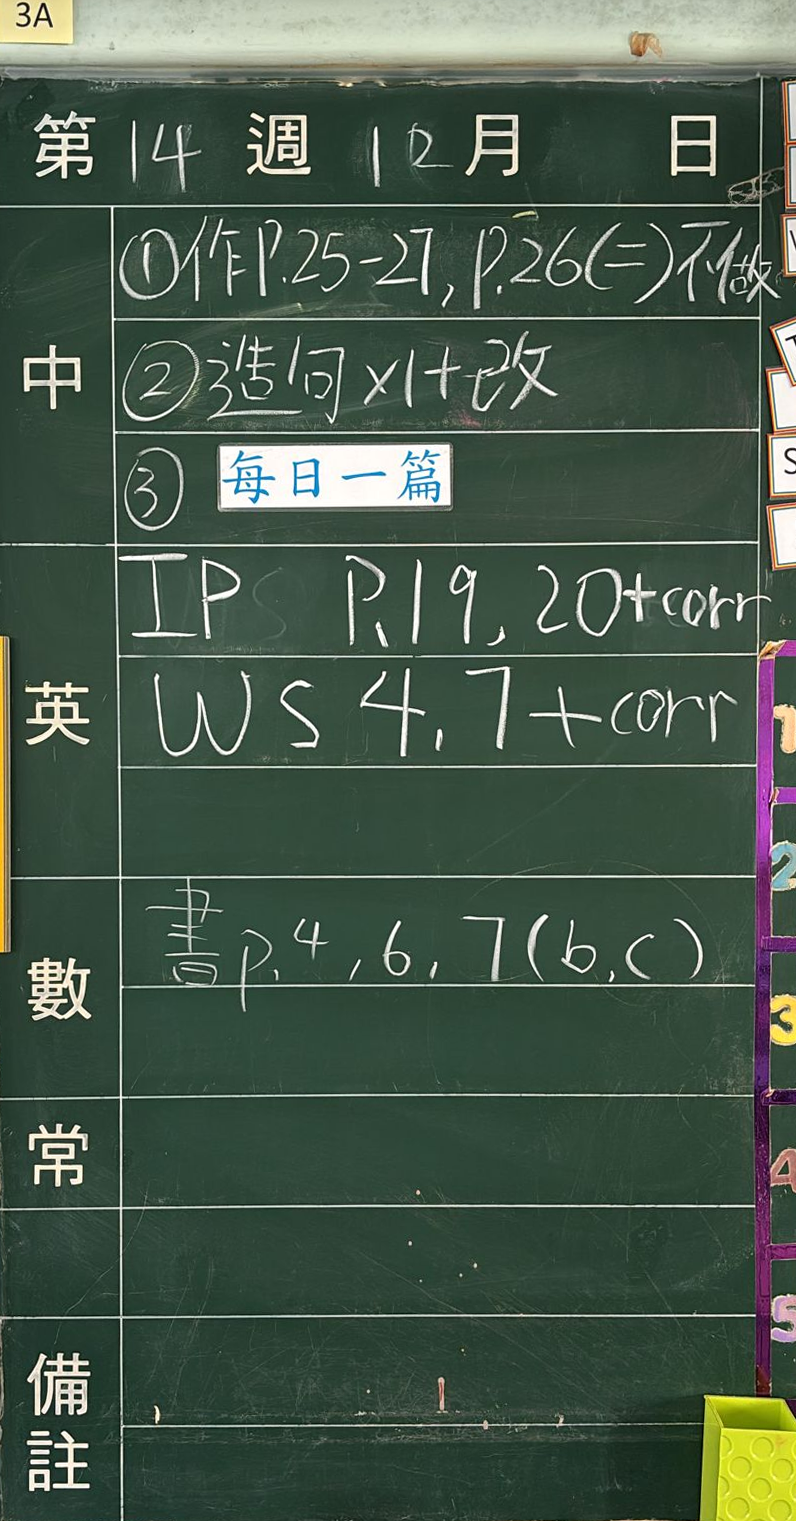 3A
第 14 週 12 月 日
中
①作P.25-27, P.26(二)不做
②造句x1+改
③ 每日一篇
英
IPS P.19, 20+corr
WS 4, 7+corr
數
書p.4, 6, 7(b,c)
常
備註
1
2
3
4
5
S